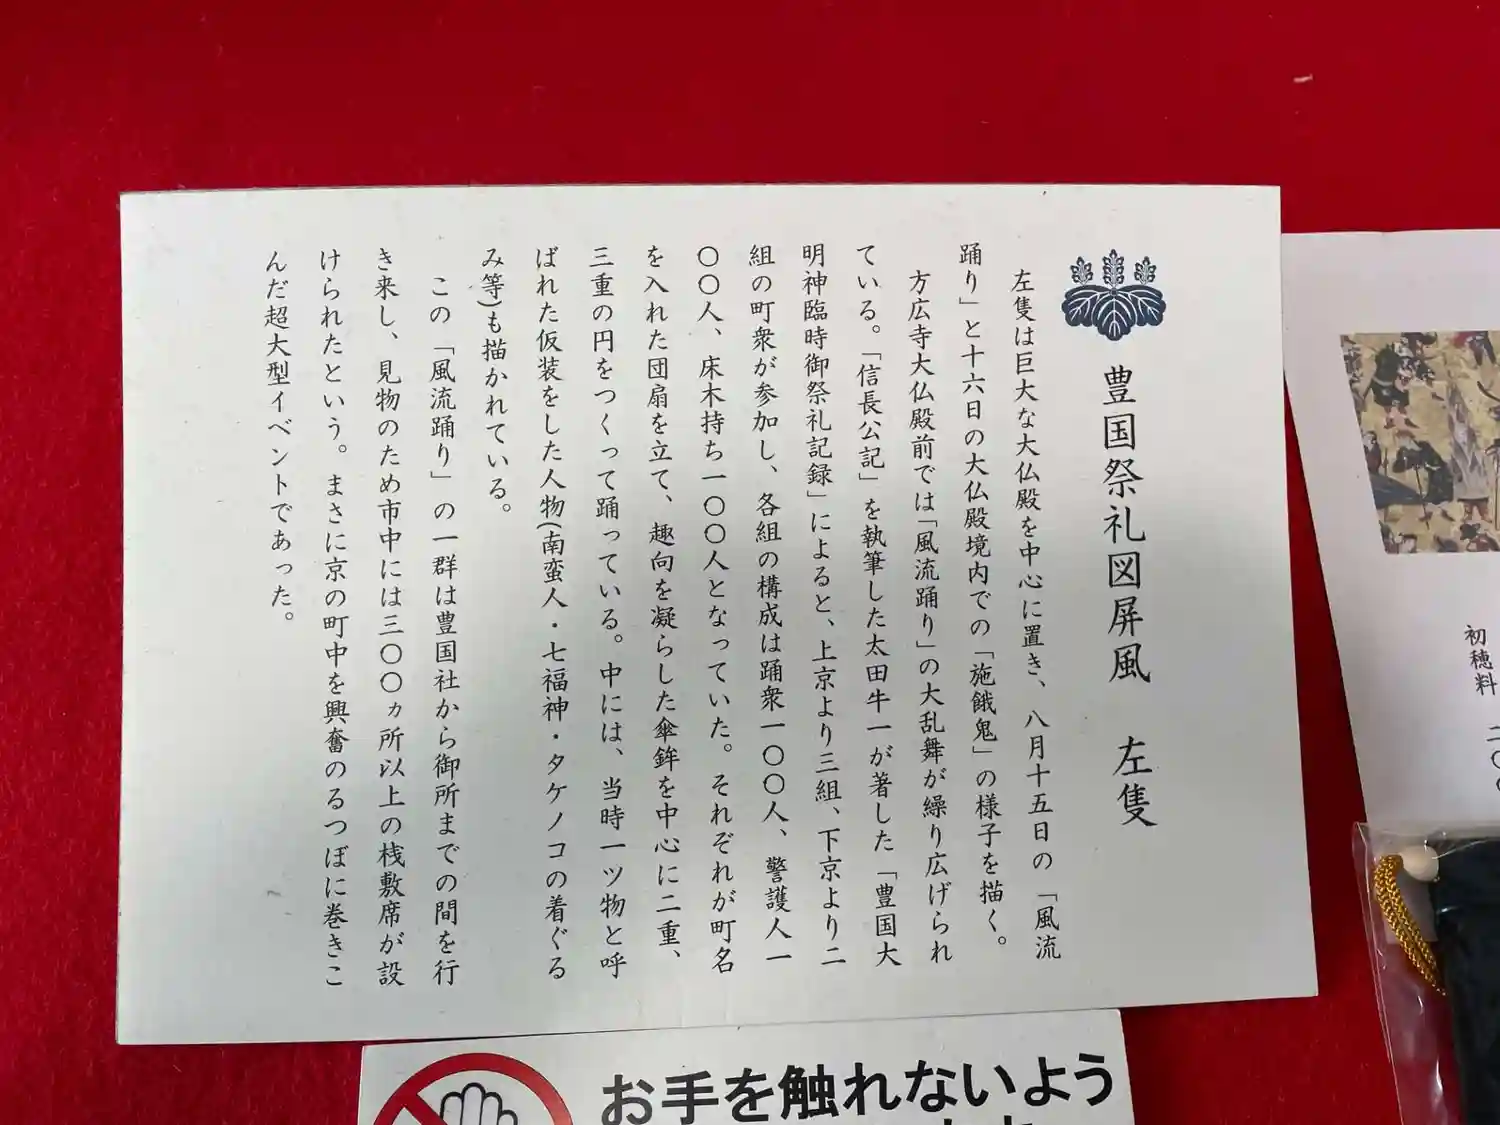 豊国祭礼図屏風 左隻
左隻は巨大な大仏殿を中心に置き、八月十五日の「風流
踊り」と十六日の大仏殿境内での「施餓鬼」の様子を描く。
方広寺大仏殿前では「風流踊り」の大乱舞が繰り広げられ
ている。「信長公記」を執筆した太田牛一が著した「豊国大
明神臨時御祭礼記録」によると、上京より三組、下京より二
組の町衆が参加し、各組の構成は踊衆一〇〇人、警護人一
〇〇人、床木持ち一〇〇人となっていた。それぞれが町名
を入れた団扇を立て、趣向を凝らした傘鉾を中心に二重、
三重の円をつくって踊っている。中には、当時一ツ物と呼
ばれた仮装をした人物(南蛮人・七福神・タケノコの着ぐる
み等)も描かれている。
この「風流踊り」の一群は豊国社から御所までの間を行
き来し、見物のため市中には三〇〇ヵ所以上の桟敷席が設
けられたという。まさに京の町中を興奮のるつぼに巻きこ
んだ超大型イベントであった。
初穂料
お手を触れないよう